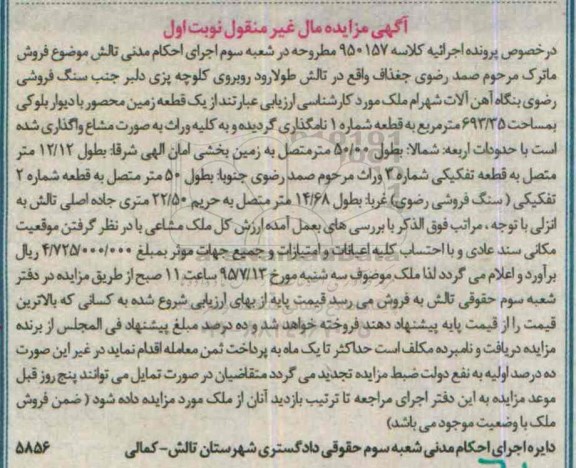 آگهی مزایده مال غیر منقول نوبت اول
در خصوص پرونده اجرائیه کلاسه ۹۵۰۱۵۷ مطروحه در شعبه سوم اجرای احکام مدنی تالش موضوع فروش
ماترک مرحوم صمد رضوی جغذاف واقع در تالش طولارود روبروی کلوچه پزی دلبر جنب سنگ فروشی
رضوی بنگاه آهن آلات شهرام ملک مورد کارشناسی ارزیابی عبارتند از یک قطعه زمین محصور با دیوار بلوکی
بمساحت ۶۹۳/۳۵ مترمربع به قطعه شماره ۱ نامگذاری گردیده و به کلیه وراث به صورت مشاع واگذاری شده
است با حدودات اربعه: شمالا: بطول ۵۰/۰۰ مترمتصل به زمین بخشی امان الهی شرقا: بطول ۱۲/۱۲ متر
متصل به قطعه تفکیکی شماره ۳ وراث مرحوم صمد رضوی جنوبا: بطول ۵۰ متر متصل به قطعه شماره ۲
تفکیکی ( سنگ فروشی رضوی) غربا: بطول ۱۴/۶۸ متر متصل به حریم ۲۲/۵۰ متری جاده اصلی تالش به
انزلی با توجه ، مراتب فوق الذکر با بررسی های بعمل آمده ارزش کل ملک مشاعی با در نظر گرفتن موقعیت
مکانی سند عادی و با احتساب کلیه اعیانات و امتیازات و جمیع جهات موثر بمبلغ ۴/۷۲۵/۰۰۰/۰۰۰ ریال
برآورد و اعلام می گردد لذا ملک موصوف سه شنبه مورخ ۹۵/۷/۱۳ ساعت ۱۱ صبح از طریق مزایده در دفتر
شعبه سوم حقوقی تالش به فروش می رسد قیمت پایه از بهای ارزیابی شروع شده به کسانی که بالاترین
قیمت را از قیمت پایه پیشنهاد دهند فروخته خواهد شد و ده درصد مبلغ پیشنهاد فی المجلس از برنده
مزایده دریافت و نامبرده مکلف است حداکثر تا یک ماه به پرداخت ثمن معامله اقدام نماید در غیر این صورت
ده درصد اولیه به نفع دولت ضبط مزایده تجدید می گردد متقاضیان در صورت تمایل می توانند پنج روز قبل
موعد مزایده به این دفتر اجرای مراجعه تا ترتیب بازدید آنان از ملک مورد مزایده داده شود ( ضمن فروش
ملک با وضعیت موجود می باشد)
دایره اجرای احکام مدنی شعبه سوم حقوقی دادگستری شهرستان تالش- کمالی ۵۸۵۶